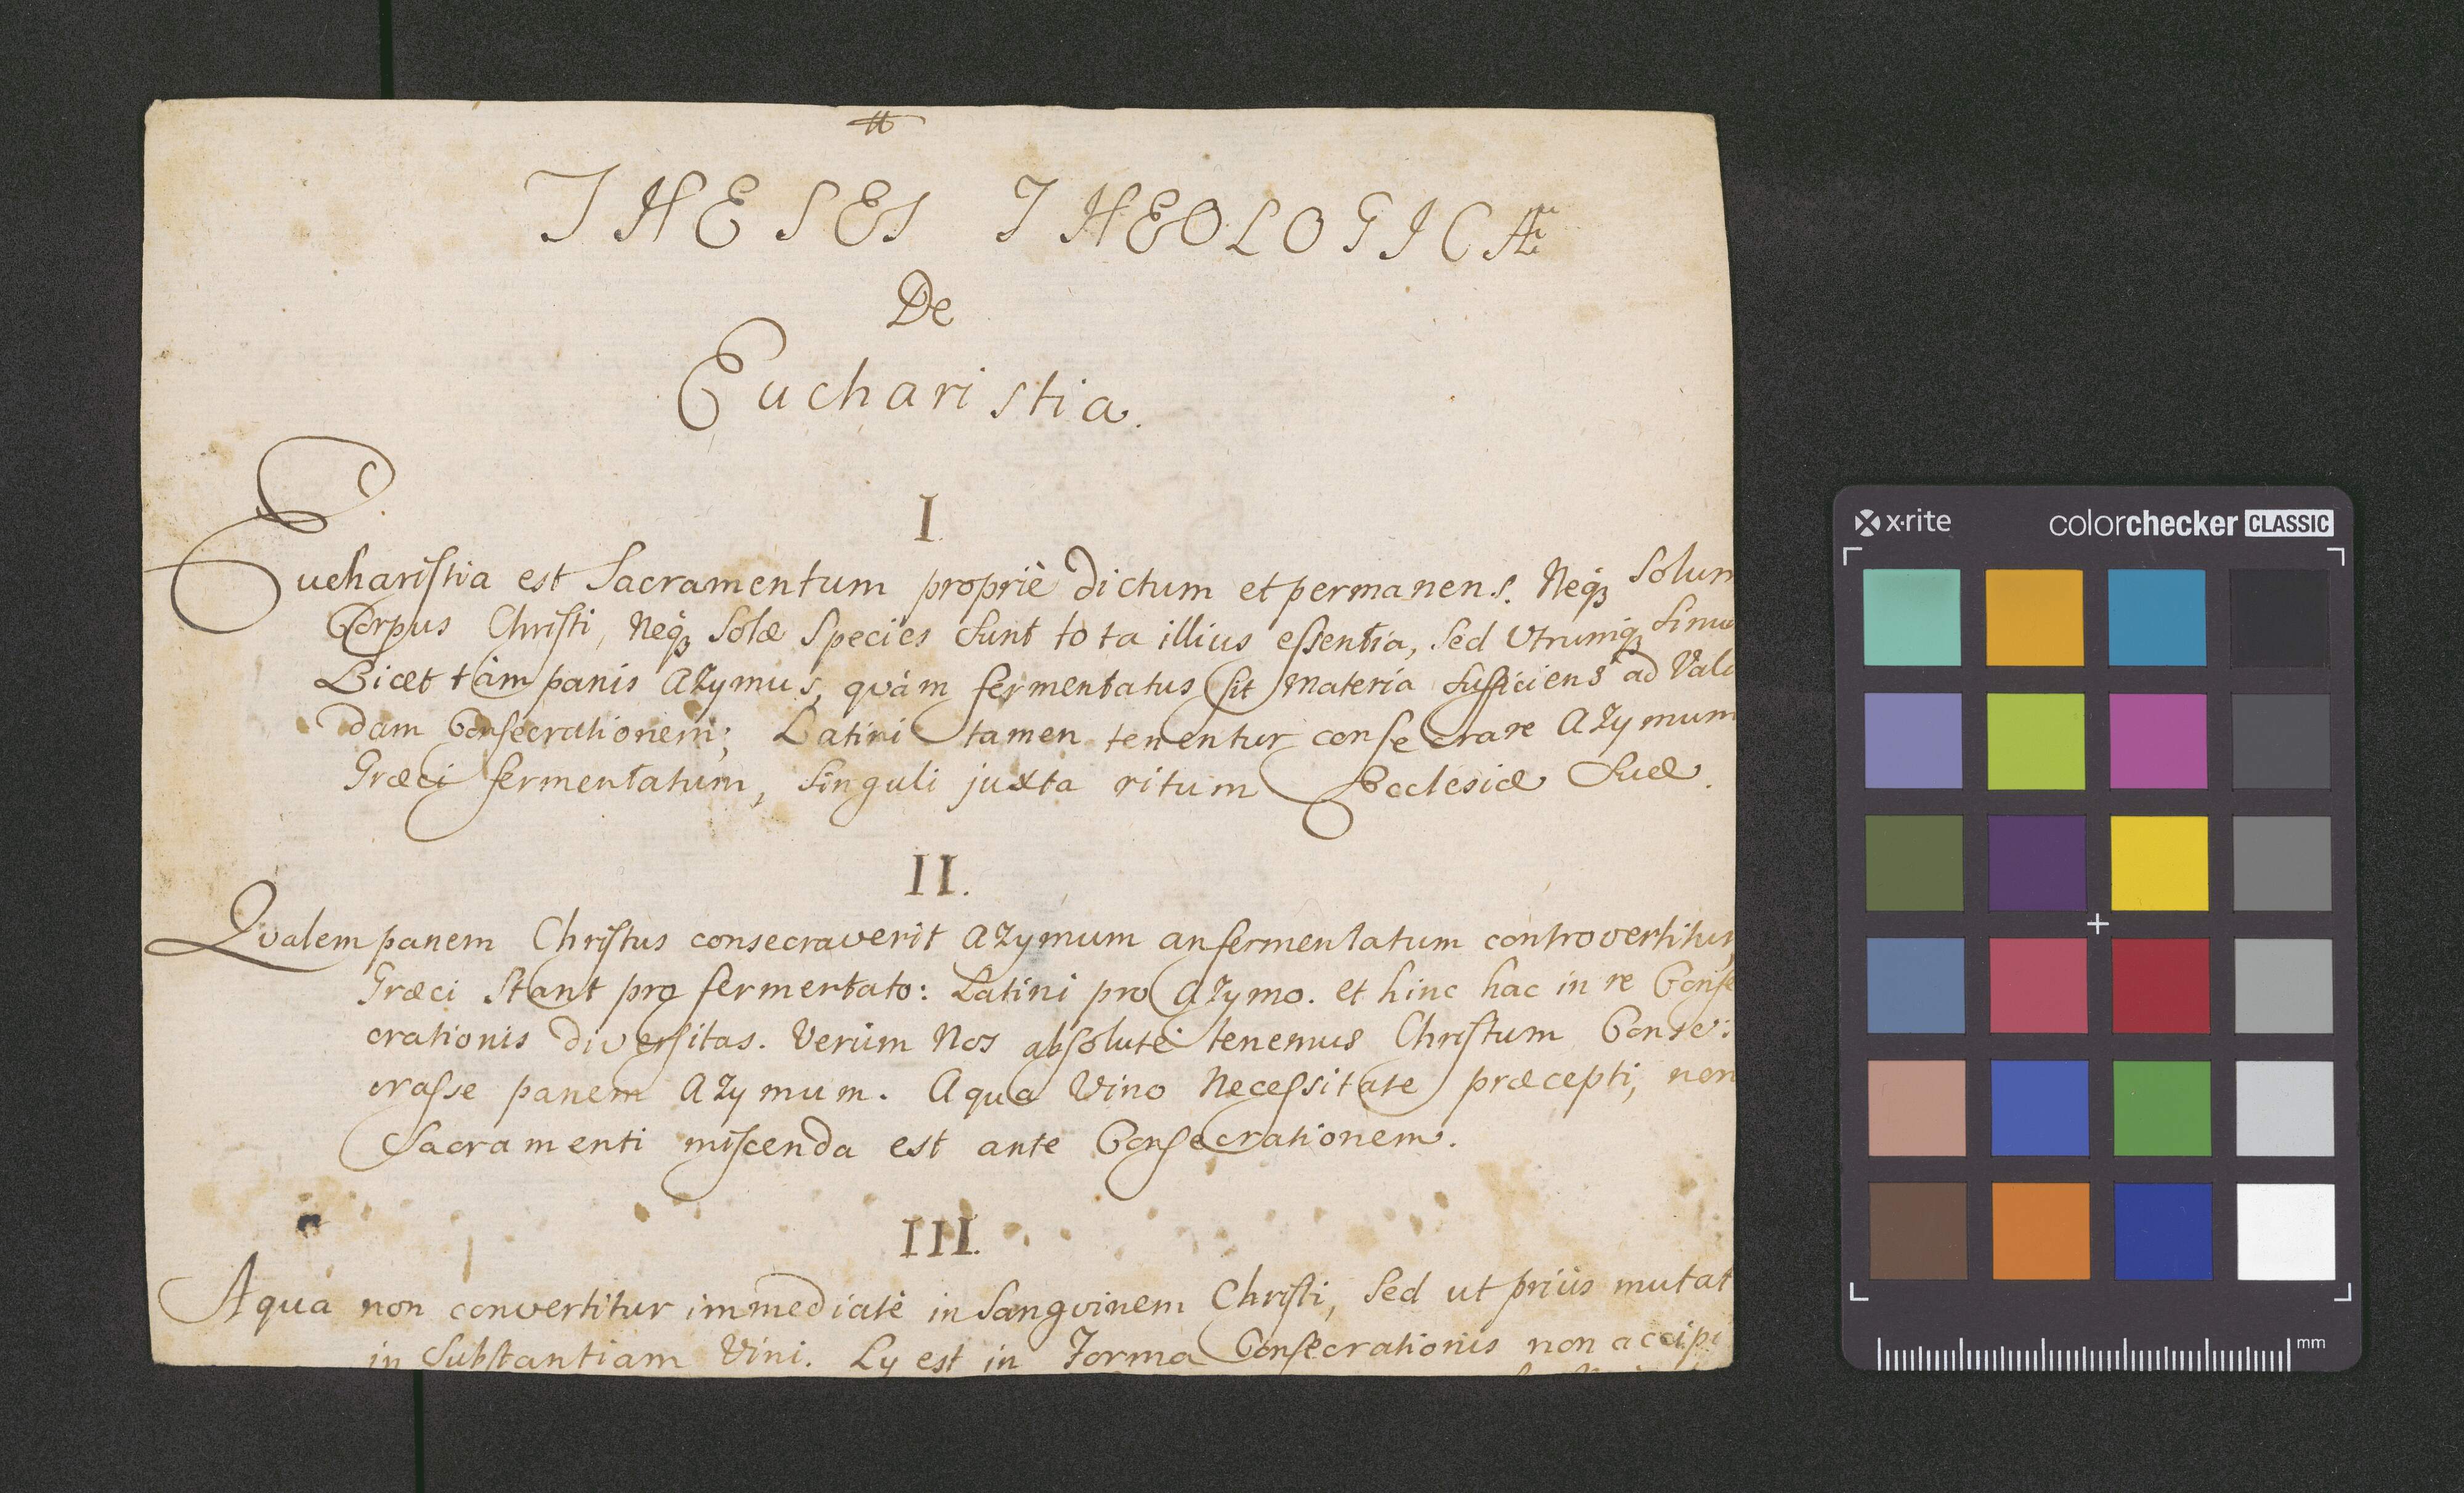 THESES THEOLOGICÆ
De
Eucharistia.
I.
Eucharistia est Sacramentum propriè dictum et permanens. Neqꝫ Solum
Corpus Christi, Neqꝫ Solæ Species sunt tota illius essentia, sed Utrumqꝫ simu
Licet tàm panis Azymus, quàm fermentatus sit Materia sufficiens ad Vali
dam Consecrationem; Latini tamen tenentur consecrare Azymum
Græci fermentatum, singuli juxta ritum Ecclesiæ suæ.
II.
Qualem panem Christus consecraverit Azymum an fermentatum controvertitur
Græci stant pro fermentato: Latini pro Azymo. et hinc hac in re Conse
crationis diversitas. Verùm Nos absolutè tenemus Christum Conse:
crasse panem Azymum. Aqua Vino Necessitate præcepti, non
Sacramenti miscenda est ante Consecrationem.
III.
Aqua non convertitur immediatè in Sangvinem Christi, sed ut priùs mutat
in Substantiam Vini. Ly est in Forma Consecrationis non accipi
x·rite
colorchecker CLASSIC
mm